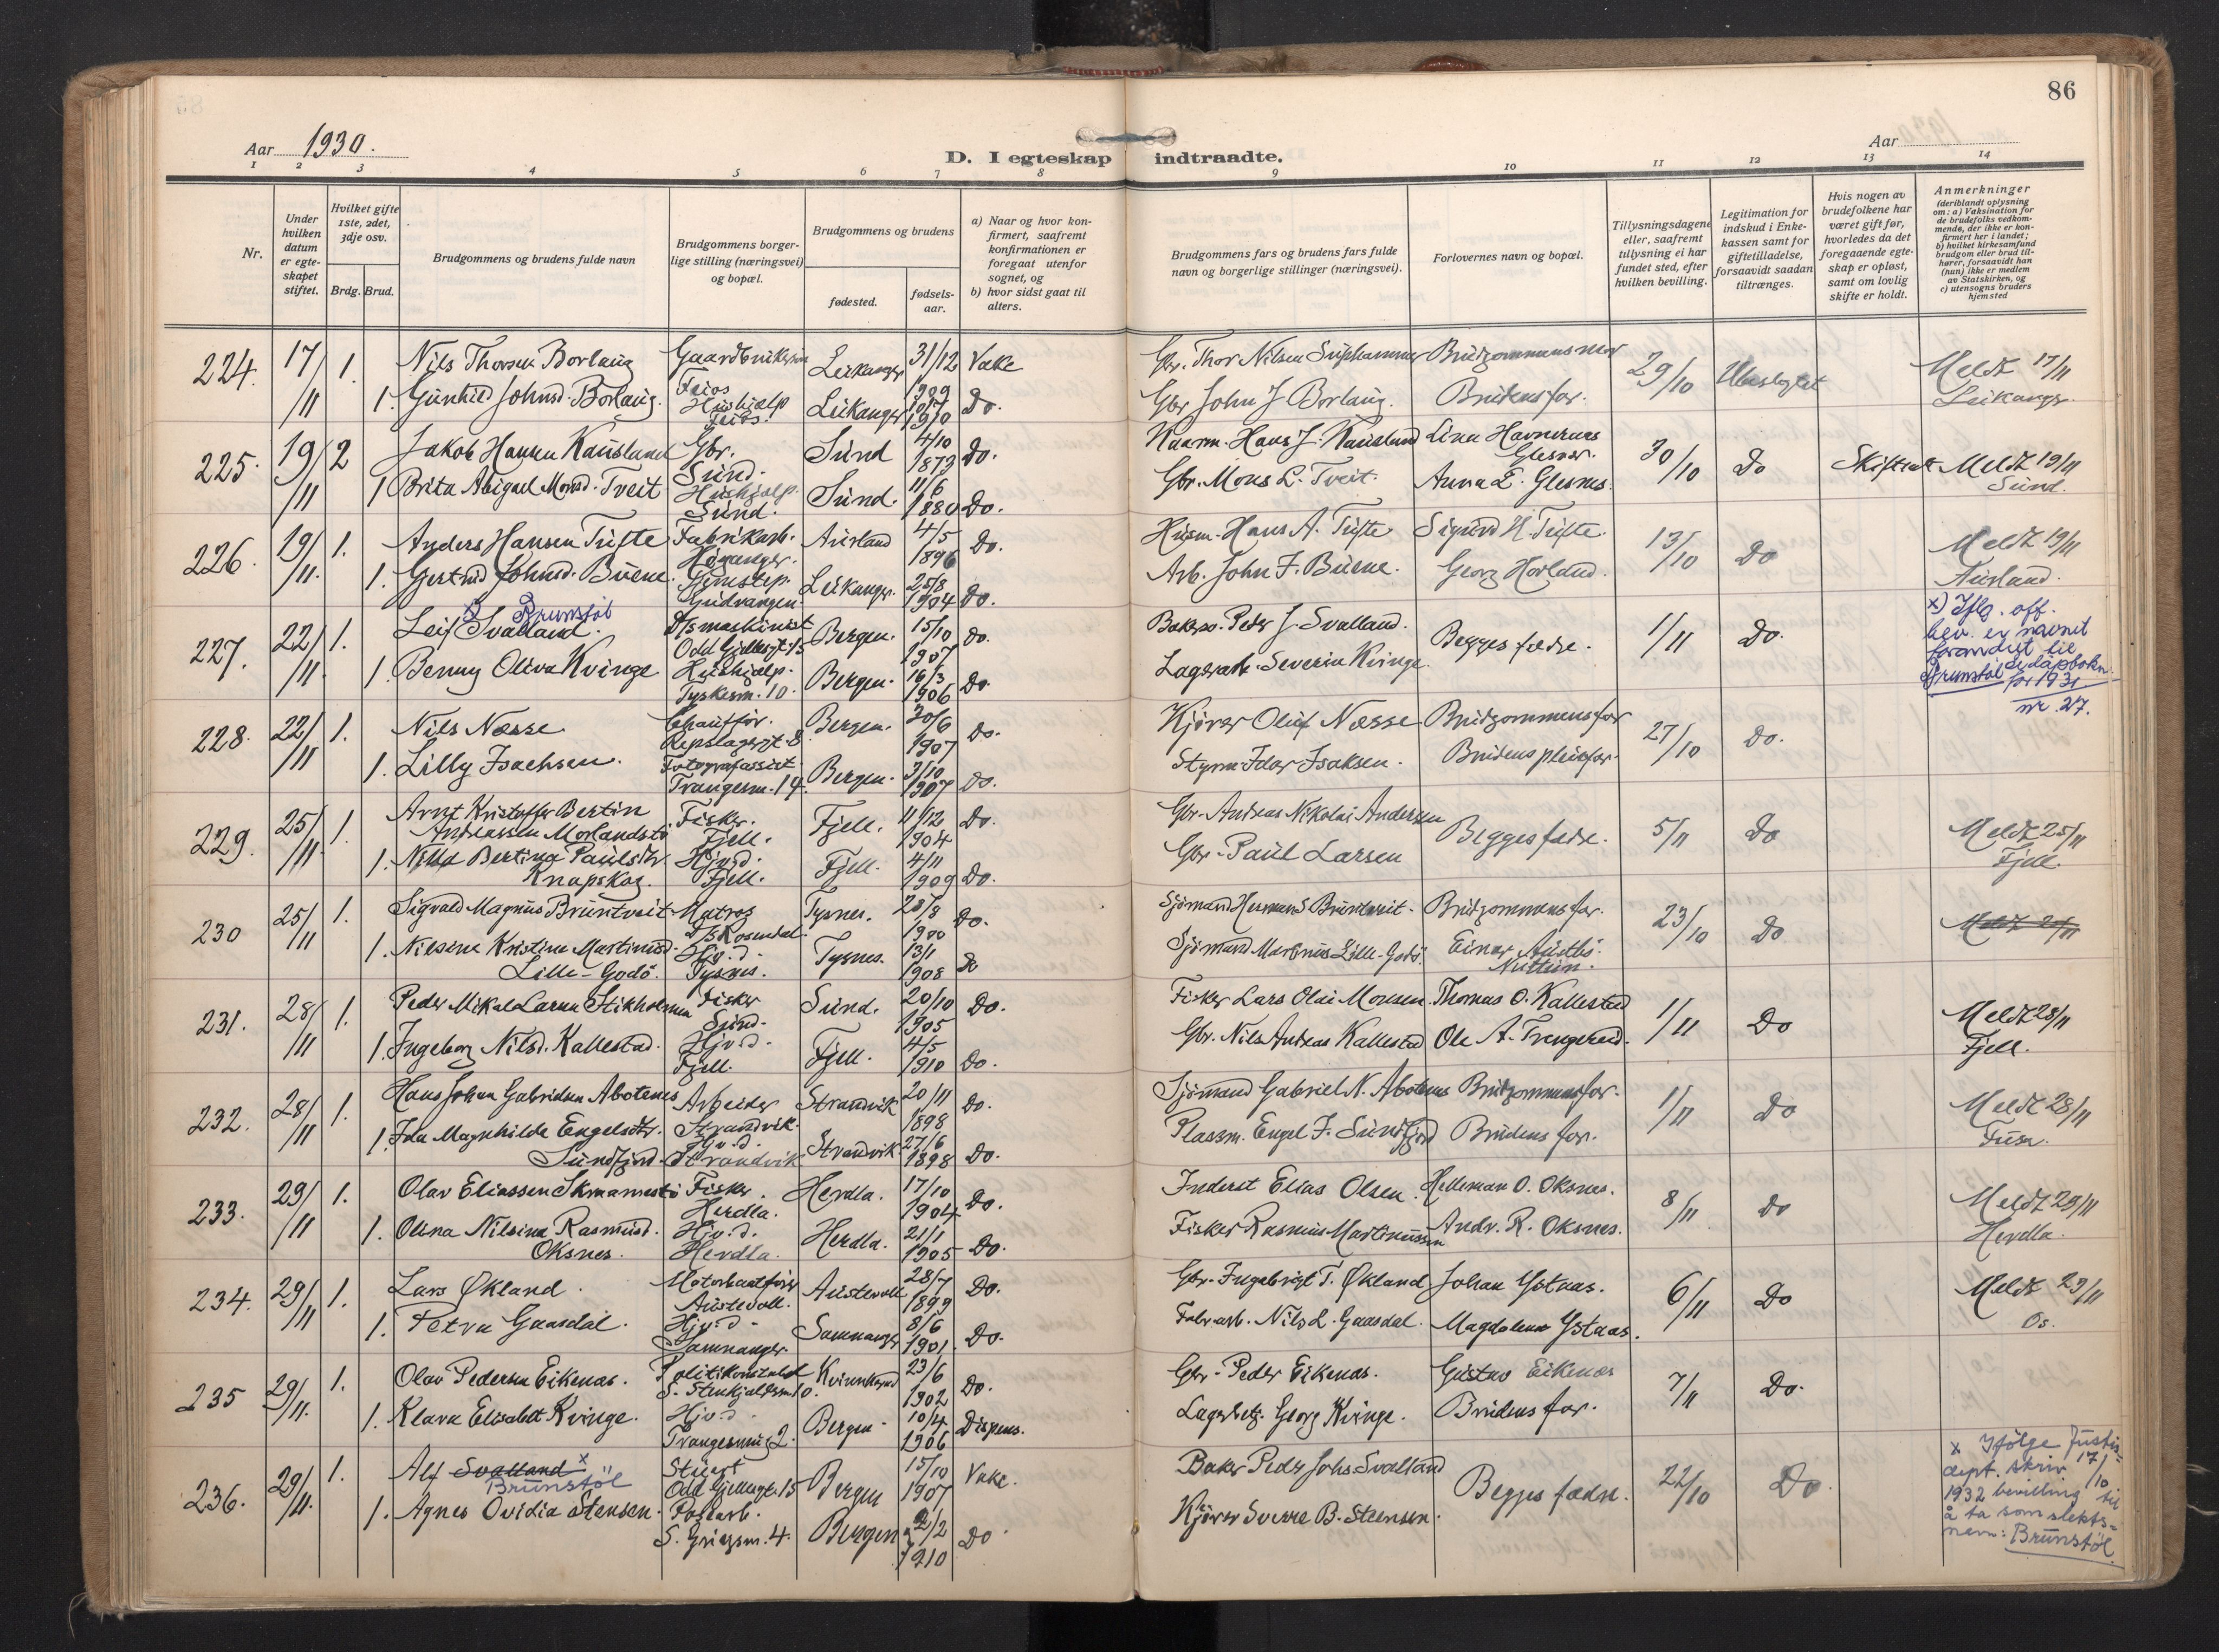 86
Aar 1930.
Aar
D. I egteskap indtraadte.
1 2 3 4 5 6 7 8 9 10 11 12 13 14
Nr.
Under hvilken datum er egteskapet stiftet.
Hvilket gifte 1ste, 2det, 3dje osv.
Brdg. Brud.
Brudgommens og brudens fulde navn
Brudgommens borgerlige stilling (næringsvei) og bopæl.
Brudgommens og brudens
fødested.
fødselsaar.
a) Naar og hvor konfirmert, saafremt konfirmationen er foregaat utenfor sognet, og
b) hvor sidst gaat til alters.
Brudgommens fars og brudens fars fulde navn og borgerlige stillinger (næringsvei).
Forlovernes navn og bopæl.
Tillysningsdagene eller, saafremt tillysning ei har fundet sted, efter hvilken bevilling.
Legitimation for indskud i Enkekassen samt for giftetilladelse, forsaavidt saadan tiltrænges.
Hvis nogen av brudefolkene har været gift før, hvorledes da det foregaaende egteskap er opløst, samt om lovlig skifte er holdt.
Anmerkninger
(deriblandt oplysning om: a) Vaksination for de brudefolks vedkommende, der ikke er konfirmert her i landet; b) hvilket kirkesamfund brudgom eller brud tilhører, forsaavidt han (hun) ikke er medlem av Statskirken, og c) utensogns bruders hjemsted
224. 17/11 1. Nils Thorsen Borlaug Gaardbruker Feios Leikanger 31/12 1909 Vake Gbr. Thor Nilsen Brudgommens mor 29/10 Ubeslegtet Meldt 17/11
1. Gunhild Johnsd. Borlaug. Hushjelp Feios. Leikanger 1910 Do. Gbr John J Borlaug. Brudens far. Leikanger
225. 19/11 2 Jakob Hansen Kausland Gbr. Sund. Sund 4/10 1873 Do. Haarm. Hans J. Kausland Lina Havnernes Glesnes. 30/10 Do Skifteatt Meldt 19/11
1 Brita Abigael Monsd. Tveit Hushjelp. Sund. Sund. 11/6 1880 Do. Gbr. Mons L. Tveit. Anna E. Glesnes. Sund.
226. 19/11. 1. Anders Hansen Tufte Fabrikarb. Høyanger. Aurland 4/5 1896 Do. Husm. Hans A. Tufte Sigurd H. Tufte. 13/10 Do Meldt 19/11
1. Gjertrud Johnsd. Buene. Gudvangen. Leikanger. 25/8 1904 Do. Arb. John F. Buene. Georg Horland. Aurland.
227. 22/11. 1. Leif Svalland. Brunstøl D/S maskinist Odd Gjellesgt. 15 Bergen. 15/10 1907 Do. Peder J. Svalland. Begges fædre. 1/11 Do. x) Iflg. off. bev. er navnet forandret til Brunstøl for 1931 nr 27.
1 Benny Oliva Kvinge Hushjelp. Tyskesm. 10. Bergen. 16/3 1906 Do. Lagerarb. Severin Kvinge.
228. 22/11 1. Nils Næsse Chauffør. Repslagergt. 8 Bergen. 20/6 1907 Do. Kjører Oluf Næsse Brudgommens far 27/10 Do.
1. Lilly Isachsen. Fotografassist. Trangesm. 14. Bergen. 3/10 1907 Do. Styrm. Idar Isaksen. Brudens pleiefar.
229. 25/11. 1. Arnt Kristoffer Bertin Andreassen Morlandstø Fisker. Fjell. Fjell. 11/12 1904 Do. Gbr. Andreas Nikolai Andersen Begges fædre. 5/11 Do Meldt 25/11
1. Bertina Paulsdtr. Knapskog. Hjv.d. Fjell. Fjell. 4/11 1909 Do. Gbr. Paul Larsen Fjell.
230 25/11 1. Sigvald Magnus Bruntveit Matros D/S Rosendal. Tysnes. 28/8 1900 Do. Sjømand Herman S Bruntveit. Brudgommens far. 23/10 Do Meldt 25/11
1. Nilsine Kristine Martinusd. Lille-Godø. Hjv.d. Tysnes. Tysnes. 13/1 1908 Do Sjømand Martinus Lille-Godø. Einar
231. 28/11 1. Peder Mikal Larsen Stikholmen Fisker Sund. Sund. 20/10 1905 Do. Fisker Lars Olai Monsen. Thomas O. Kallestad 1/11 Do Meldt 28/11
1. Ingeborg Nilsd. Kallestad. Hjv.d. Fjell. Fjell. 4/5 1910 Do. Gbr. Nils Andreas Kallestad Ole A. Trengereid. Fjell.
232. 28/11 1. Hans Johan Gabrielsen Abotenes Arbeider Strandvik. Strandvik 20/11 1898 Do. Sjømand Gabriel N. Abotenes Brudgommens far. 1/11 Do Meldt 28/11
1. Ida Magnhilde Engelsdtr. Sundfjord. Hjv.d. Strandvik Strandvik. 27/6 1898 Do. Plassm. Engel J. Sundfjord Brudens far. Fusa.
233. 29/11 1. Olav Eliassen Skrammestø Fisker. Herdla. Herdla. 17/10 1904 Do. Inderst Elias Olsen. Helleman O. Oksnes. 8/11 Do Meldt 29/11
1. Olina Nilsina Rasmusd. Oksnes. Hjv.d. Herdla. Herdla. 21/1 1905 Do. Fisker Rasmus Martinussen Andr. R. Oksnes. Herdla.
234. 29/11 1. Lars Økland. Motorbaatfører Austevoll. Austevoll 28/7 1899 Do. Gbr. Ingebrigt T. Økland Johan Ystaas. 6/11 Do Meldt 29/11
1. Petra Gaasdal. Hjv.d. Samnanger. Samnanger 8/6 1901. Do. Fabr.arb. Nils L. Gaasdal. Magdalena Ystaas. Os.
235 29/11. 1. Olav Pedersen Eikenas. Politikonstabel S. Stenkjældersm. 10. Kvinnherad 23/6 1902 Do. Gbr. Peder Eikenas. Gustav Eikenas 7/11 Do.
1. Klara Elisabet Kvinge. Hjv.d. Trangesmug 2. Bergen. 10/4 1906 Dispens. Lagerbetj. Georg Kvinge. Brudens far.
236. 29/11. 1. Alf Svalland x Brunstøl Stuert Odd Gjellesgt. 15 Bergen 15/10 1907 Vake. Baker Peder Johs. Svalland Begges fædre. 22/10 Do x Ifølge Justisdept. skriv. 17/10 1932 bevilling til å ta som slektsnavn: Brunstøl
1. Agnes Ovidia Stensen. S. Griegsm. 4. Bergen 2/2 1910 Do Kjører Sverre B. Steensen.